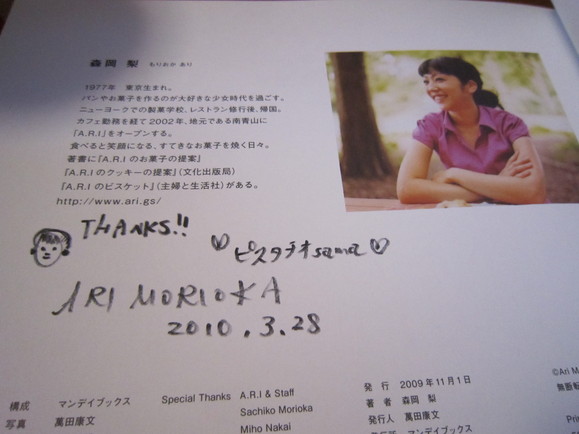 森岡 梨 もりおか あり
1977年 東京生まれ。
パンやお菓子を作るのが大好きな少女時代を過ごす。
ニューヨークでの製菓学校、レストラン修行後、帰国。
カフェ勤務を経て2002年、地元である南青山に
『A.R.I』をオープンする。
食べると笑顔になる、すてきなお菓子を焼く日々。
著書に『A.R.I のお菓子の提案』
『A.R.Iのクッキーの提案』（文化出版局）
『A.R.I のビスケット』（主婦と生活社）がある。
http://www.ari.gs/
THANKS!!
♡ピスタチオsama♡
ARI MORIOKA
2010.3.28
構成 マンデイブックス
写真 萬田康文
Special Thanks A.R.I & Staff
Sachiko Morioka
Miho Nakai
発行 2009年11月1日
著者 森岡 梨
発行人 萬田康文
©Ari M
無断転